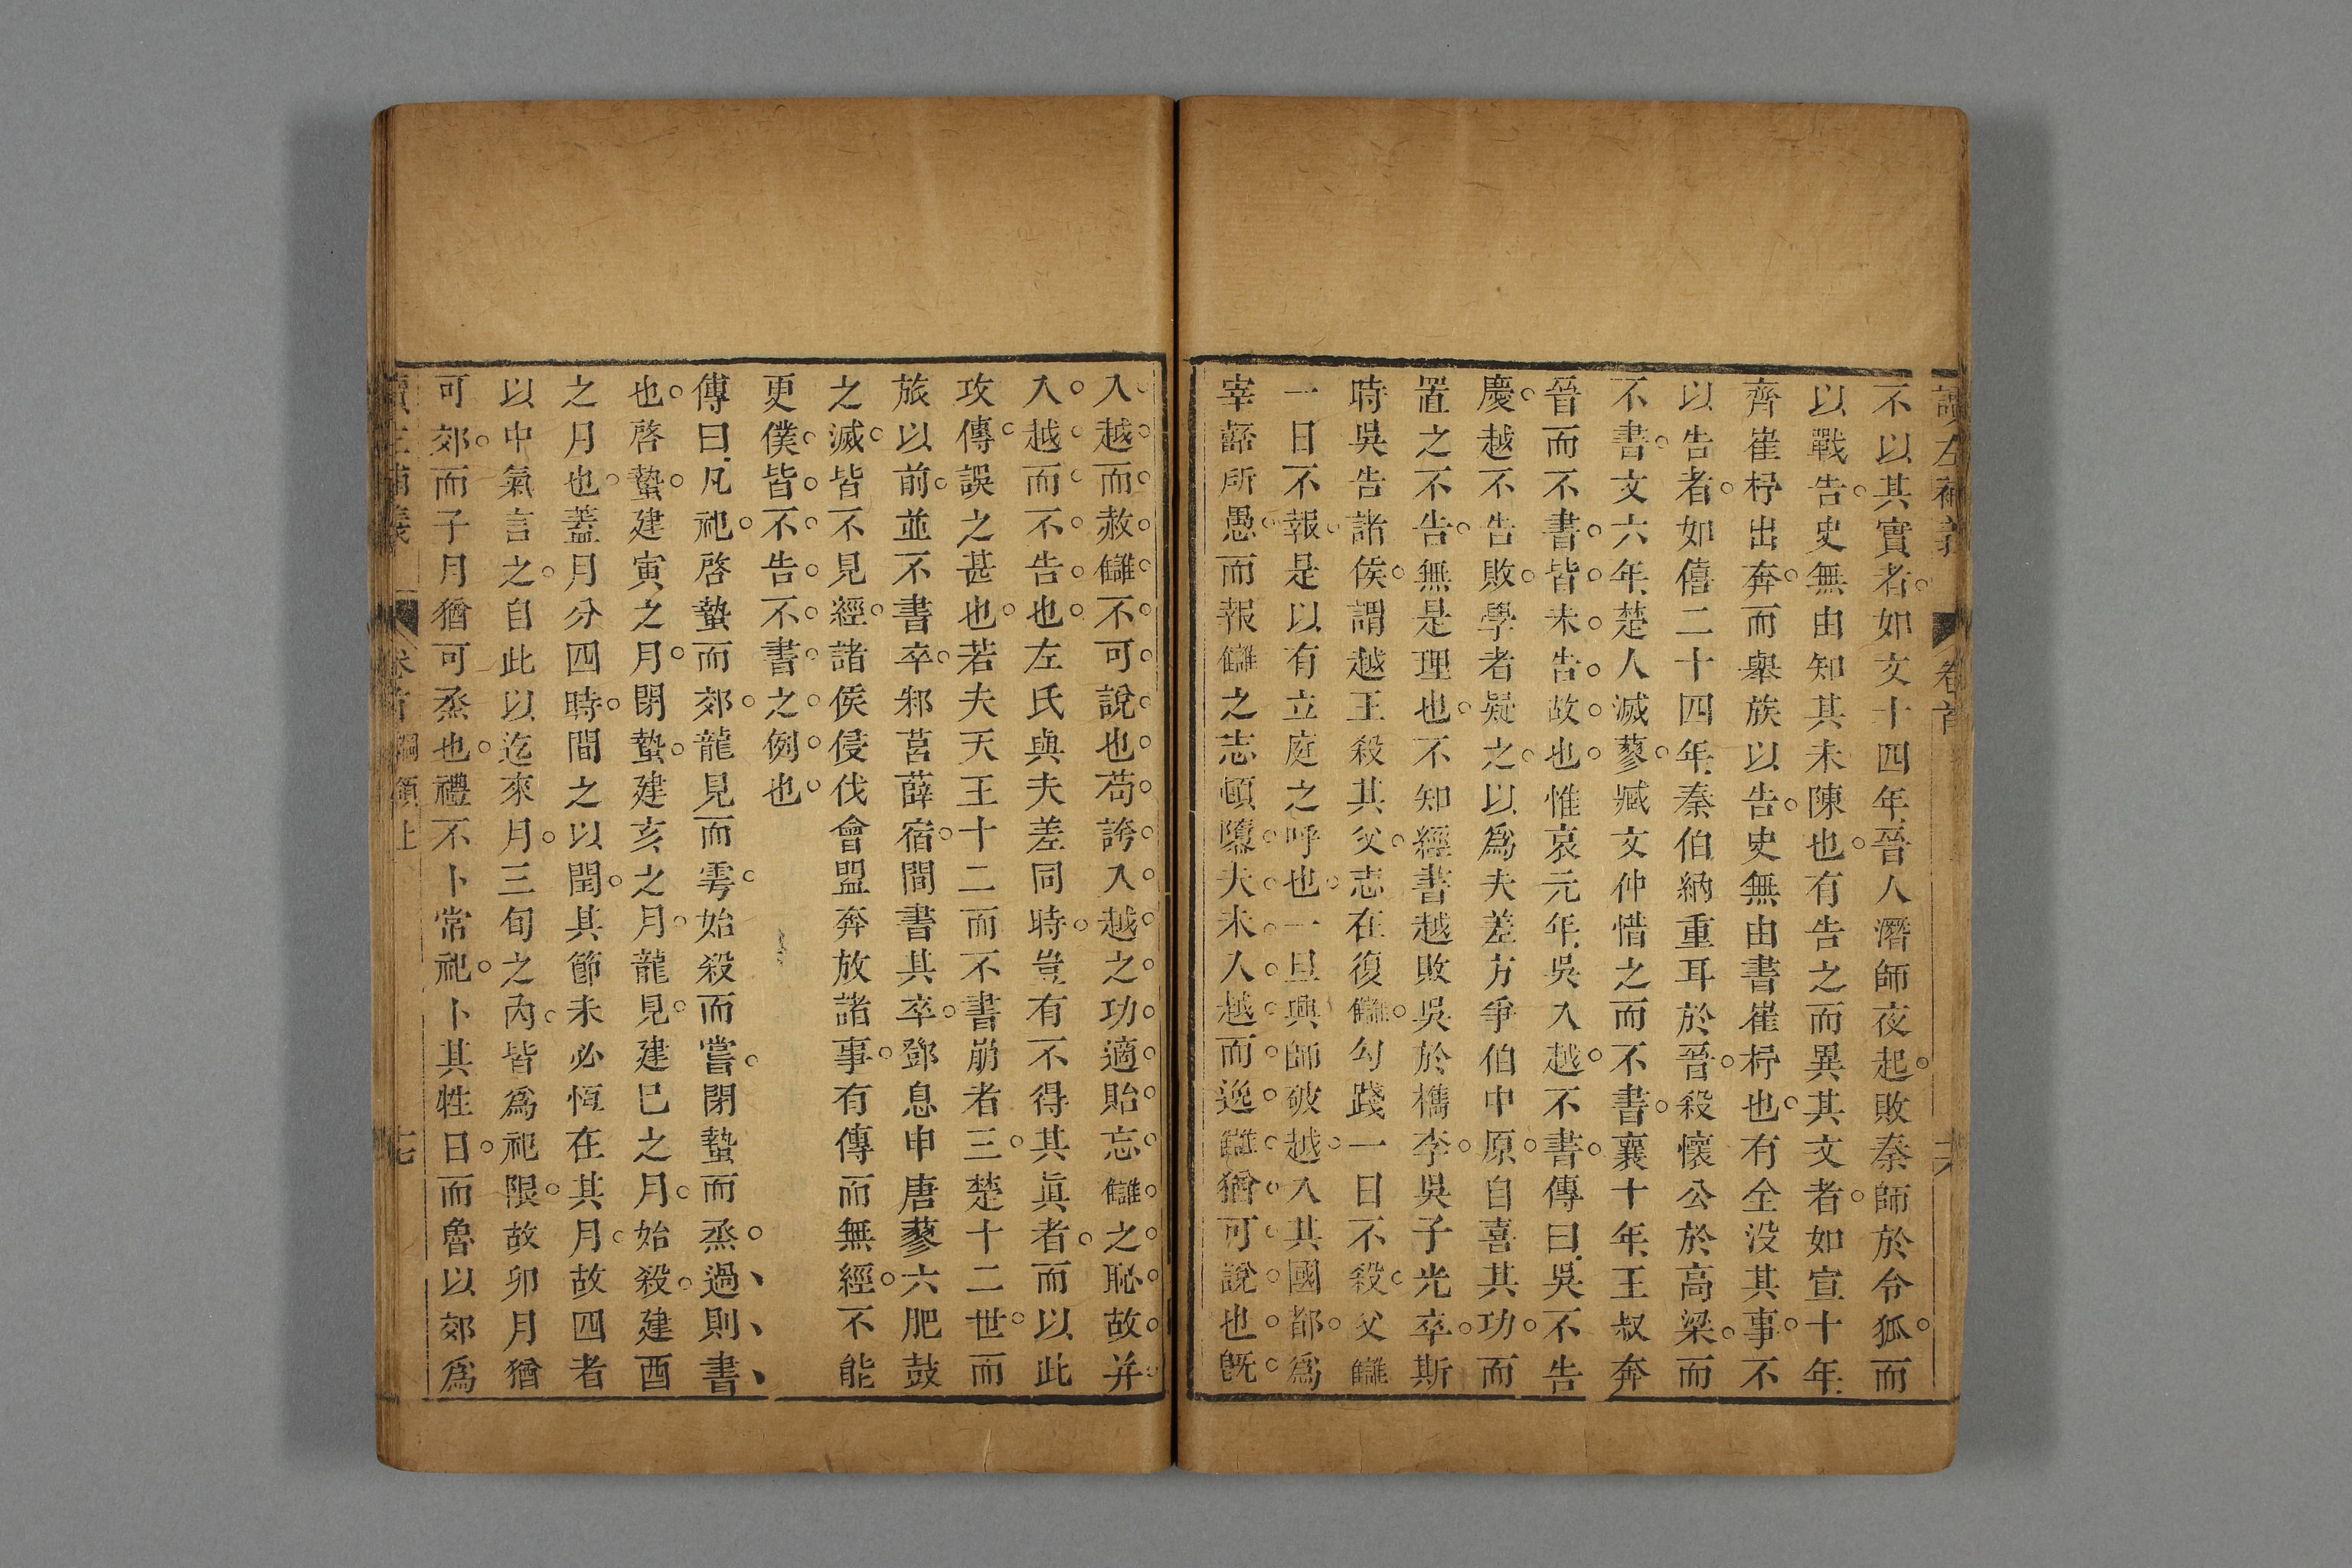 讀左補義 卷首 六
不以其實者如文十四年晉人潛師夜起敗秦師於令狐而
以戰告史無由知其未陳也有告之而異其文者如宣十年
齊崔杼出奔而舉族以告史無由書崔杼也有全没其事不
以告者如僖二十四年秦伯納重耳於晉殺懷公於高梁而
不書文六年楚人滅蓼臧文仲惜之而不書襄十年王叔奔
晉而不書皆未告故也惟哀元年吳入越不書傳曰吳不告
慶越不告敗學者疑之以為夫差方爭伯中原自喜其功而
置之不告無是理也不知經書越敗吳於檇李吳子光卒斯
時吳告諸侯謂越王殺其父志在復讎勾踐一日不殺父讎
一日不報是以有立庭之呼也一旦興師破越入其國都為
宰嚭所愚而報讎之志頓隳夫未入越而逸讎猶可說也既
入越而赦讎不可說也苟誇入越之功適貽忘讎之恥故并
入越而不告也左氏與夫差同時豈有不得其眞者而以此
攻傳誤之甚也若夫天王十二而不書崩者三楚十二世而
旅以前並不書卒邾莒薛宿間書其卒鄧息申唐蓼六肥鼓
之滅皆不見經諸侯侵伐會盟奔放諸事有傳而無經不能
更僕皆不告不書之例也
傳曰凡祀啓蟄而郊龍見而雩始殺而嘗閉蟄而烝過則書
也啓蟄建寅之月閉蟄建亥之月龍見建巳之月始殺建酉
之月也蓋月分四時間之以閏其節未必恆在其月故四者
以中氣言之自此以迄來月三旬之內皆為祀限故卯月猶
可郊而子月猶可烝也禮不卜常祀卜其牲日而魯以郊為
讀左補義 卷首 綱領上 七